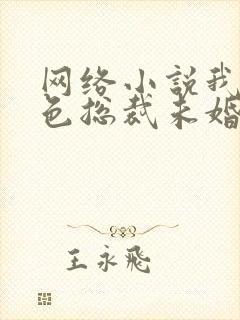 网络小说我
色总裁未婚
王永飞